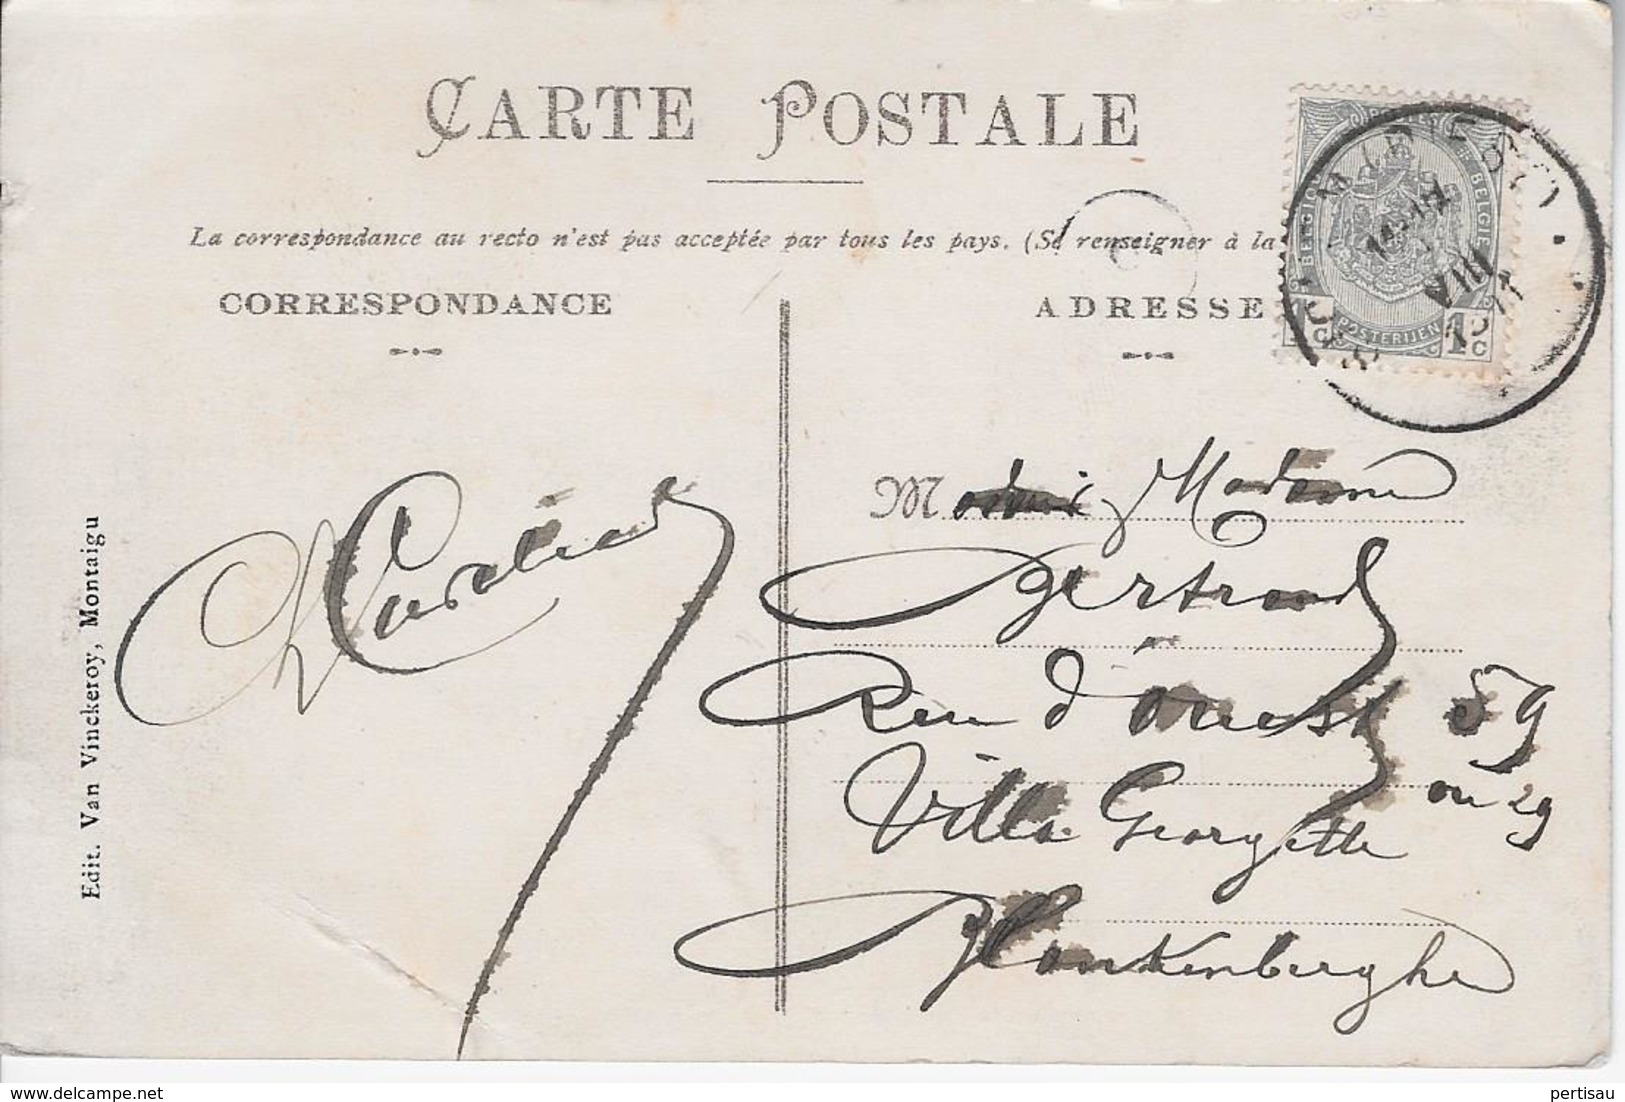 CARTE POSTALE
La correspondance au recto n'est pas acceptée par tous les pays. (Se renseigner à la
CORRESPONDANCE
ADRESSE
BELGIQUE
BELGIE
POSTERIJEN
1c
1c
VIII
M Madame
Gertrand
Rue d'ouest 59
ou 29
Villa Georgette
Blankenberghe
Edit. Van Vinckeroy, Montaigu
pertisau